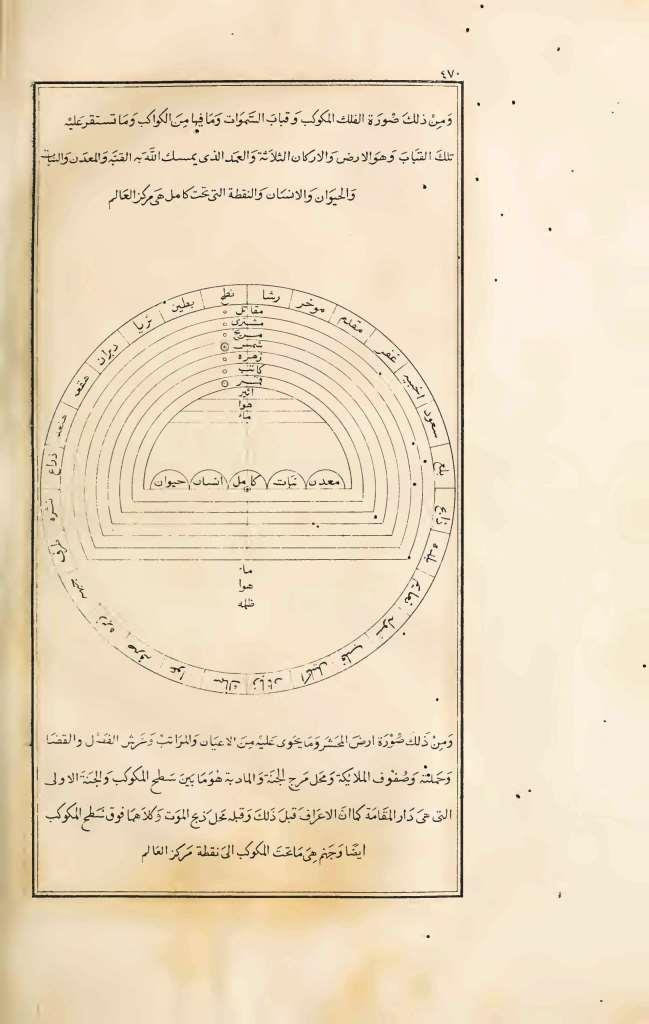 ٤٧٠
وَمِنْ ذلك صُورَة الفلك المكوكب وقبابَ السَّموَات وَمَا فيها مِنَ الكواكب وَمَا تستقر عليْه
تلكَ القبَابَ وَهوَ الارض وَالاركان الثلاثة وَالعمد الذى يمسك الله به القبَّه وَالمعدَن وَالنبات
وَالحيوَان وَالانسَان وَالنقطة التى تحت كامل هىَ مركز العَالم
نطح
رشا
موخر
مقدم
غفر
اخبيه
سعود
بلع
ذابح
بلده
نعايم
شوله
قلب
اكليل
زبانا
سماك
عوا
صرفه
زبره
طرف
نثره
ذراع
هنعه
هقعه
دبران
ثريا
بطين
مقاتل
مشترى
مريخ
شمس
زهره
كاتب
قمر
اثير
هوا
ما
معدن نبات كامل انسان حيوان
ما
هوا
ظلمه
وَمِن ذَلكَ صُوْرَة ارضَ المحَشر وَمَا يحَوى عَليْه مِنَ الاعيَان وَالمرَاتبْ وَعَرشِ الفصْل وَالقضا
وَحَملته وَصُفوف الملايكَة وَمحَل مرج الجنَة وَالمادبة هُوَ مَا بَين سَطح المكوكب وَالجنةَ الاولى
التى هىَ دَار المقَامَة كما انَ الاعرَاف قبل ذلكَ وَقبله محَل ذبح الموَت وَكلاَهما فوق سَطح المكوكب
ايضًا وَجهنم هِىَ مَا تحتَ المكوكب الىَ نقطة مَركز العَالم